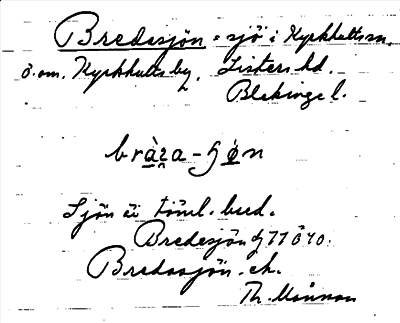 Bredasjön = sjö i Kyrkhults sn.
ö. om. Kyrkhults by, Listers hd.
Blekinge l.
bràza-ɧön
Sjön är täml. bred.
Bredesjön GJ 77 ö 40.
Bredasjön. ek.
Th. Månsson